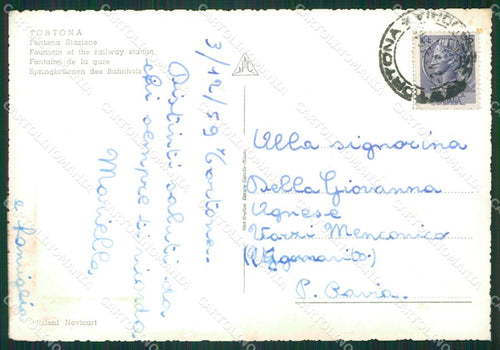 TORTONA
Fontana Stazione
Fountain of the railway station
Fontaine de la gare
Springbrunnen des Bahnhofs
3/12/59 Tortona.
Distinti saluti da
chi sempre ti ricorda
Mariella
e famiglia
Edizioni Novicart
TORTONA
Alla signorina
Della Giovanna
Agnese
Varzi Menconico
P. Pavia.
CARTOLINOMANIA